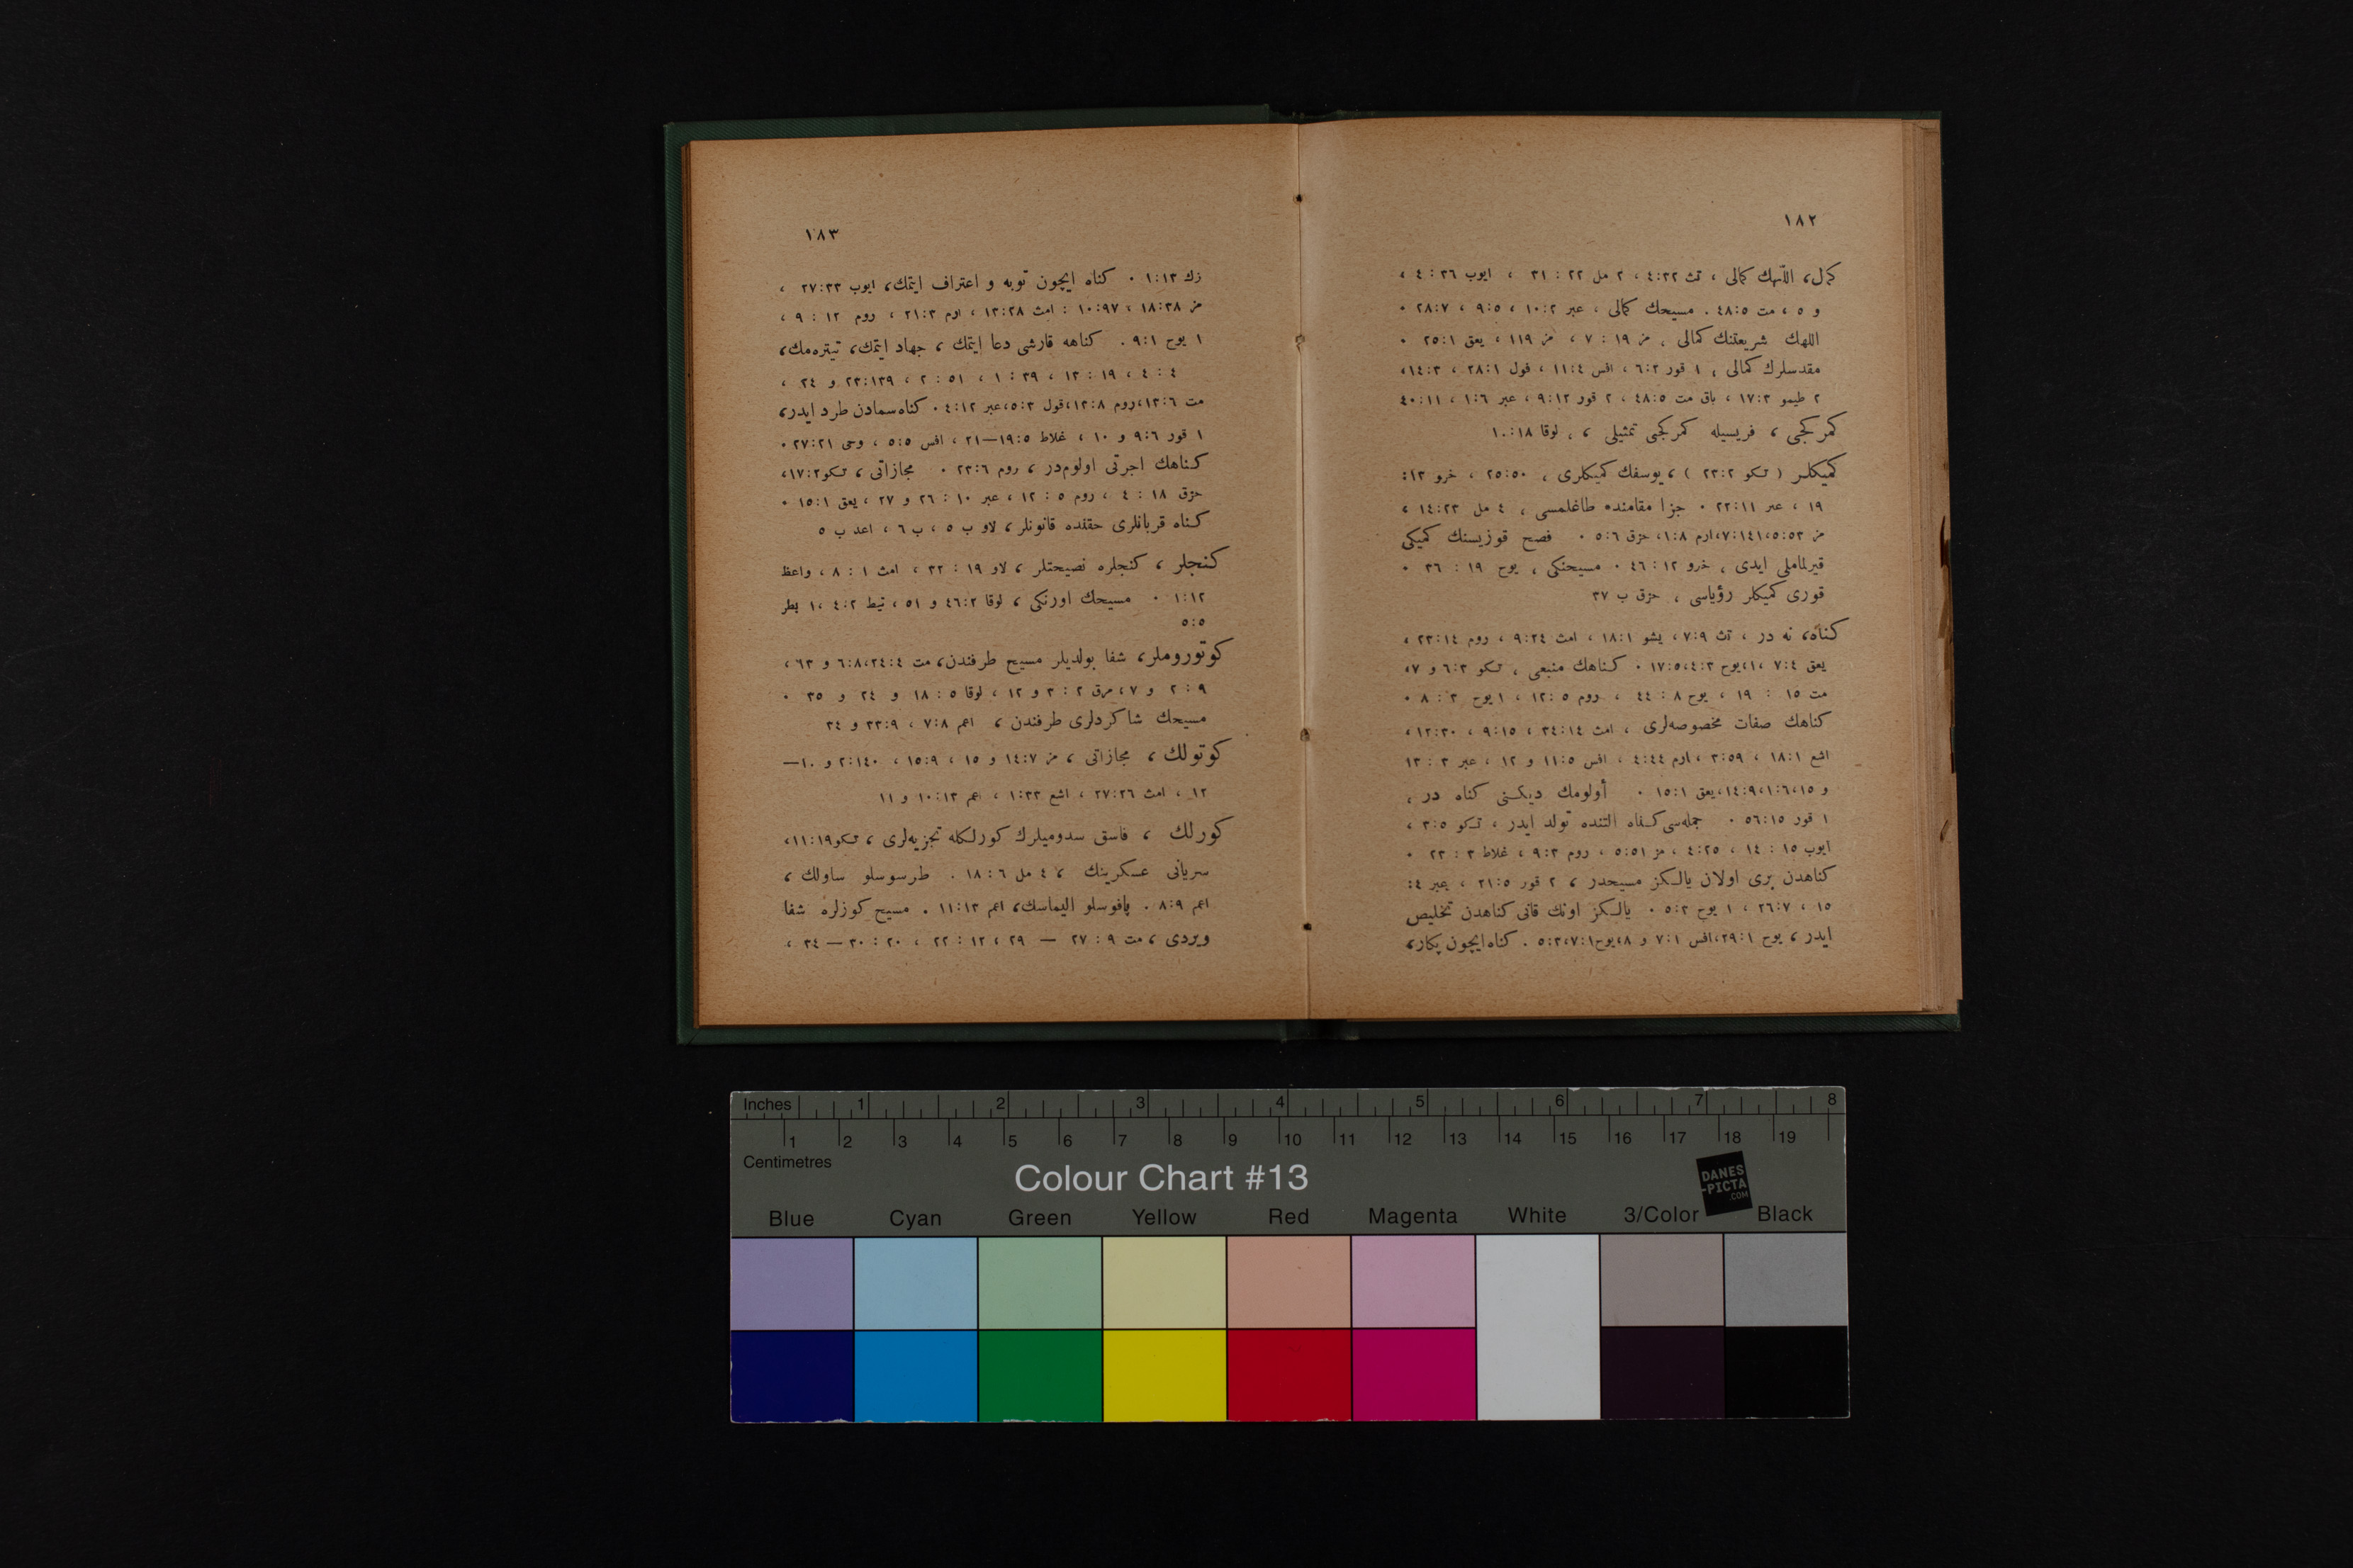 ١٨٢
كمال، اللّٰهك كمالى ، تث ٣٢:٤ ، ٢ مل ٢٢ : ٣١ ، ايوب ٣٦ : ٤ ،
و ٥ ، مت ٥:٤٨ . مسيحك كمالى ، عبر ٢:١٠ ، ٥:٩ ، ٧:٢٨ ٠
اللهك شريعتنك كمالى ، مز ١٩ : ٧ ، مز ١١٩ ، يعق ١:٢٥ ٠
مقدسلرك كمالى ، ١ قور ٢:٦ ، افس ٤:١١ ، قول ١:٢٨ ، ٣:١٤،
٢ طيمو ٣:١٧ ، باق مت ٥:٤٨ ، ٢ قور ١٣:٩ ، عبر ٦:١ ، ١١:٤٠
كمركجى ، فريسيله كمركجى تمثيلى ، ، لوقا ١٨:١٠
كميكلر ( تكو ٢:٢٣ ) ، يوسفك كميكلرى ، ٥٠:٢٥ ، خرو ١٣:
١٩ ، عبر ١١:٢٢ ٠ جزا مقامنده طاغلمسى ، ٤ مل ٢٣:١٤ ،
مز ٥٣:٥، ١٤١:٧، ارم ٨:١، حزق ٦:٥ ٠ فصح قوزيسنك كميكى
قيرلماملى ايدى ، خرو ١٢ : ٤٦ ٠ مسيحنكى ، يوح ١٩ : ٣٦ ٠
قورى كميكلر رؤياسى ، حزق ب ٣٧
كناه، نه در ، تث ٩:٧ ، يشو ١:١٨ ، امث ٢٤:٩ ، روم ١٤:٢٣ ،
يعق ٤:٧ ، ١يوح ٣:٤، ٥:١٧ ٠ كناهك منبعى ، تكو ٣:٦ و ٧،
مت ١٥ : ١٩ ، يوح ٨ : ٤٤ ، روم ٥ :١٢ ، ١ يوح ٣ : ٨ ٠
كناهك صفات مخصوصه‌لرى ، امث ١٤:٣٤ ، ١٥:٩ ، ٣٠:١٢،
اشع ١:١٨ ، ٥٩:٣ ، ارم ٤٤:٤ ، افس ٥:١١ و ١٢ ، عبر ٣ : ١٣
و ١٥، ٦:١، ٩:١٤، يعق ١:١٥ ٠ أولومك ديكنى كناه در ،
١ قور ١٥:٥٦ ٠ جمله‌سى كناه التنده تولد ايدر ، تكو ٥:٣ ،
ايوب ١٥ : ١٤ ، ٢٥:٤ ، مز ٥١:٥ ، روم ٣:٩ ، غلاط ٣ : ٢٢ ٠
كناهدن برى اولان يالكز مسيحدر ، ٢ قور ٥:٢١ ، عبر ٤:
١٥ ، ٧:٢٦ ، ١ يوح ٣:٥ ٠ يالكز اونك قانى كناهدن تخليص
ايدر ، يوح ١:٢٩، افس ١:٧ و ٨، يوح ١:٧، ٣:٥ . كناه ايچون پكار،
١٨٣
زك ١٣:١ ٠ كناه ايچون توبه و اعتراف ايتمك، ايوب ٣٣:٢٧ ،
مز ٣٨:١٨ ، ٩٧:١٠ : امث ٢٨:١٣ ، ارم ٣:٢١ ، روم ١٢ : ٩ ،
١ يوح ١:٩ . كناهه قارشى دعا ايتمك ، جهاد ايتمك، تيتره‌مك،
٤ : ٤ ، ١٩ : ١٣ ، ٣٩ : ١ ، ٥١ : ٢ ، ١٣٩:٢٣ و ٢٤ ،
مت ٦:١٣، روم ٨:١٣، قول ٣:٥، عبر ١٢:٤ ٠ كناه سمادن طرد ايدر،
١ قور ٦:٩ و ١٠ ، غلاط ٥:١٩—٢١ ، افس ٥:٥ ، وحى ٢١:٢٧ ٠
كناهك اجرتى اولومدر ، روم ٦:٢٣ ٠ مجازاتى ، تكو ٢:١٧،
حزق ١٨ : ٤ ، روم ٥ : ١٢ ، عبر ١٠ : ٢٦ و ٢٧ ، يعق ١:١٥ ٠
كناه قربانلرى حقنده قانونلر ، لاو ب ٥ ، ب ٦ ، اعد ب ٥
كنجلر ، كنجلره نصيحتلر ، لاو ١٩ : ٣٢ ، امث ١ : ٨ ، واعظ
١٢:١ ٠ مسيحك اورنكى ، لوقا ٢:٤٦ و ٥١ ، تيط ٢:٤ ، ١ بطر
٥:٥
كوتوروملر، شفا بولديلر مسيح طرفندن، مت ٤:٢٤، ٨:٦ و ١٣ ،
٩ : ٢ و ٧ ، مرق ٢ : ٣ و ١٢ ، لوقا ٥ : ١٨ و ٢٤ و ٢٥ ٠
مسيحك شاكردلرى طرفندن ، اعم ٨:٧ ، ٩:٣٣ و ٣٤
كوتولك ، مجازاتى ، مز ٧:١٤ و ١٥ ، ٩:١٥ ، ١٤٠:٢ و ١٠—
١٢ ، امث ٢٦:٢٧ ، اشع ٣٣:١ ، اعم ١٣:١٠ و ١١
كورلك ، فاسق سدوميلرك كورلكله تجزيه‌لرى ، تكو ١٩:١١،
سريانى عسكرينك ، ٤ مل ٦ : ١٨ . طرسوسلو ساولك ،
اعم ٩:٨ . پافوسلو اليماسك، اعم ١٣:١١ . مسيح كوزلره شفا
ويردى ، مت ٩ : ٢٧ — ٢٩ ، ١٢ : ٢٢ ، ٢٠ : ٣٠ — ٣٤ ،
Inches 1 2 3 4 5 6 7 8
1 2 3 4 5 6 7 8 9 10 11 12 13 14 15 16 17 18 19
Centimetres
Colour Chart #13
DANES
-PICTA
.COM
Blue Cyan Green Yellow Red Magenta White 3/Color Black